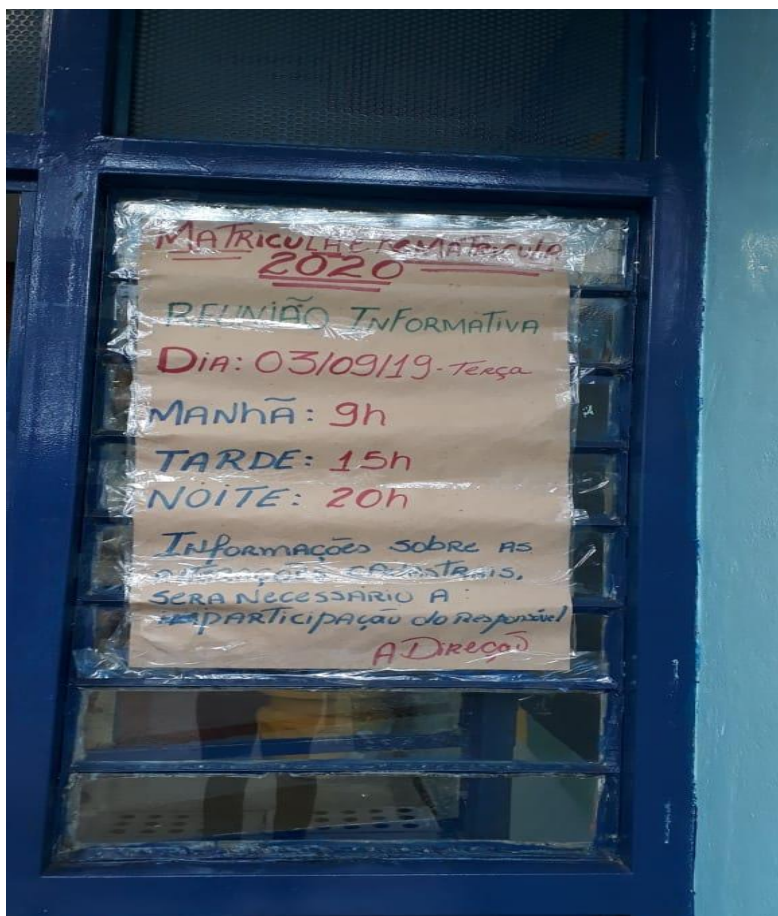 MATRICULA E REMATRICULA
2020
REUNIÃO INFORMATIVA
DIA: 03/09/19 - Terça
MANHÃ: 9h
TARDE: 15h
NOITE: 20h
INFORMAÇÕES SOBRE AS
CADASTRAIS,
SERA NECESSÁRIO A
PARTICIPAÇÃO do Responsável
A DIREÇÃO